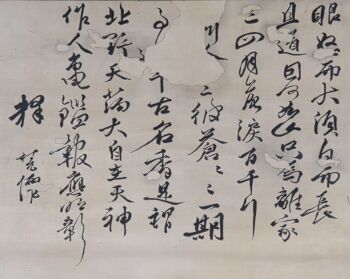 眼而大須白而長
且道因何如此只為離家
三四月落淚百千行
彼蒼〻〻一期
千古名香是謂
北野天満大自在天神
作人亀鑑報應昭彰